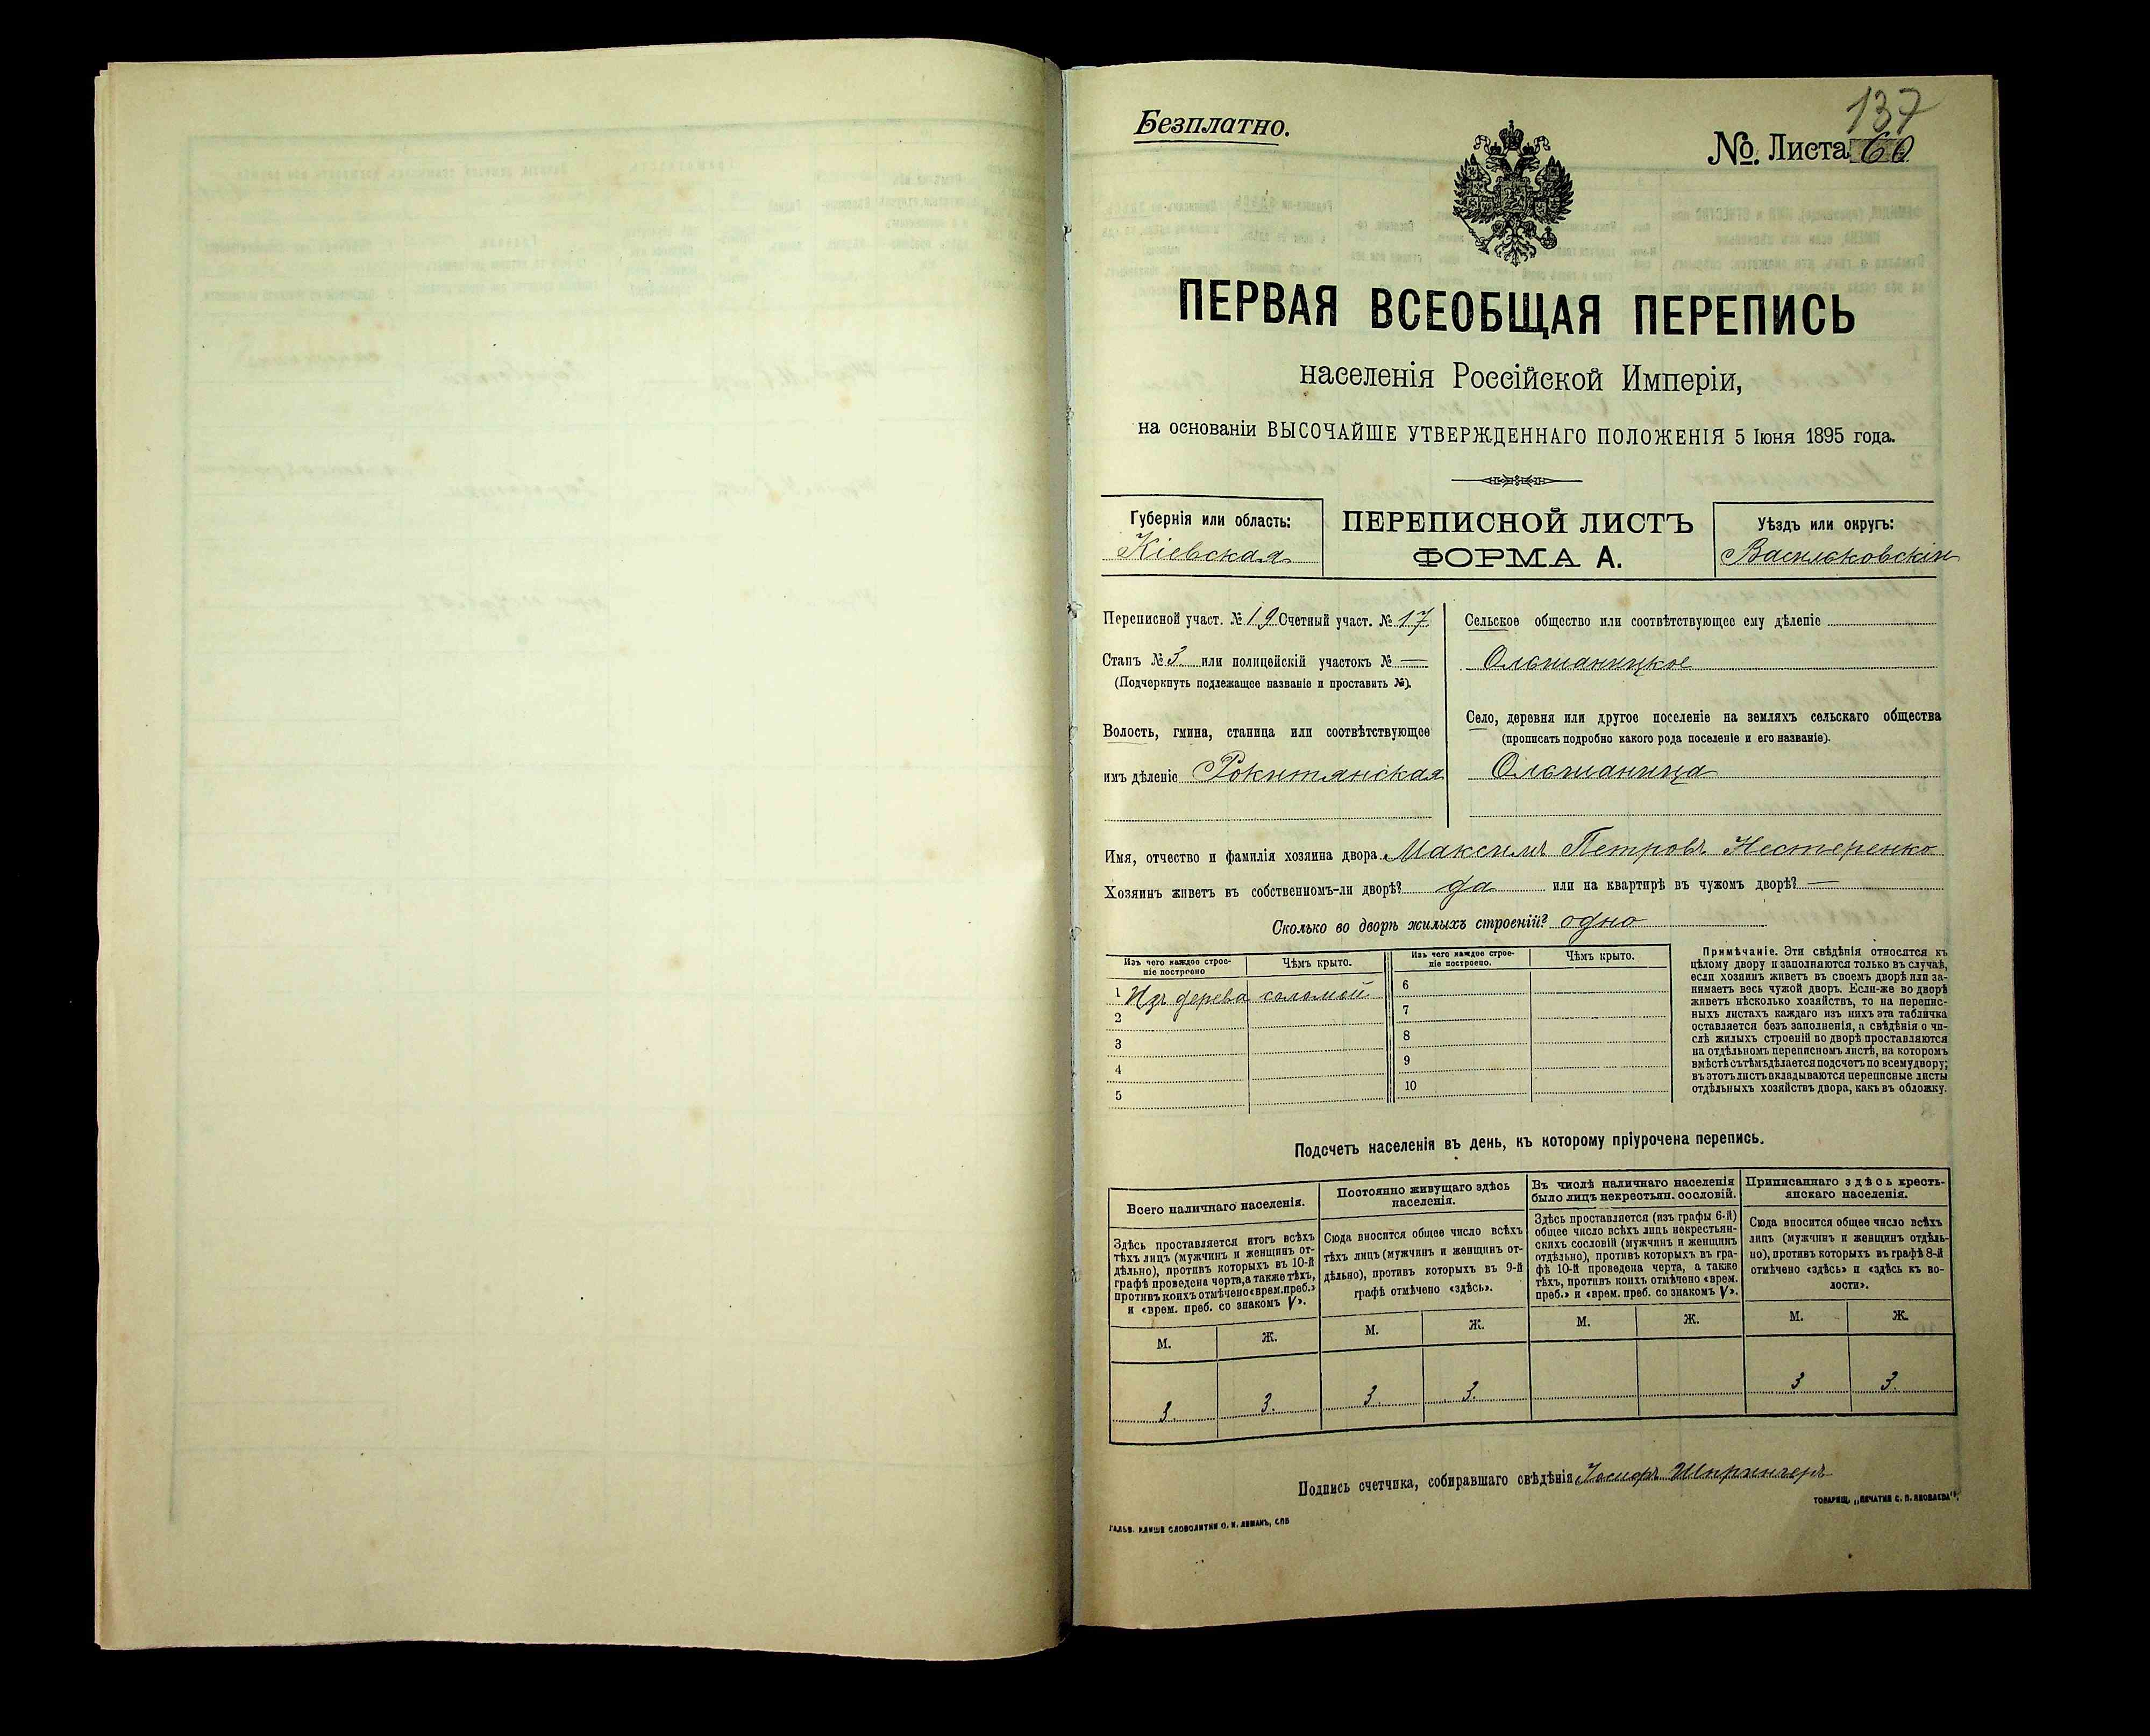 Безплатно.
137
№ Листа 60
ПЕРВАЯ ВСЕОБЩАЯ ПЕРЕПИСЬ
населенія Россійской Имперіи,
на основаніи ВЫСОЧАЙШЕ УТВЕРЖДЕННАГО ПОЛОЖЕНІЯ 5 Іюня 1895 года.
Губернія или область:
Кіевская
ПЕРЕПИСНОЙ ЛИСТЪ
ФОРМА А.
Уѣздъ или округъ:
Васильковскій
Переписной участ. № 19 Счетный участ. № 17
Станъ № 3 или полицейскій участокъ № —
(Подчеркнуть подлежащее названіе и проставить №).
Волость, гмина, станица или соотвѣтствующее
имъ дѣленіе Рокитянская
Сельское общество или соотвѣтствующее ему дѣленіе
Ольшаницкое
Село, деревня или другое поселеніе на земляхъ сельскаго общества
(прописать подробно какого рода поселеніе и его названіе).
Ольшаница
Имя, отчество и фамилія хозяина двора Максимъ Петровъ Нестеренко
Хозяинъ живетъ въ собственномъ-ли дворѣ? да или на квартирѣ въ чужомъ дворѣ? —
Сколько во дворѣ жилыхъ строеній? одно
Изъ чего каждое строе-
ніе построено
Чѣмъ крыто.
1 Изъ дерева соломой
2
3
4
5
Изъ чего каждое строе-
ніе построено.
Чѣмъ крыто.
6
7
8
9
10
Примѣчаніе. Эти свѣдѣнія относятся къ
цѣлому двору и заполняются только въ случаѣ,
если хозяинъ живетъ въ своемъ дворѣ или за-
нимаетъ весь чужой дворъ. Если-же во дворѣ
живетъ нѣсколько хозяйствъ, то на перепис-
ныхъ листахъ каждаго изъ нихъ эта табличка
оставляется безъ заполненія, а свѣдѣнія о чи-
слѣ жилыхъ строеній во дворѣ проставляются
на отдѣльномъ переписномъ листѣ, на которомъ
вмѣстѣ съ тѣмъ дѣлается подсчетъ по всему двору;
въ этотъ листъ вкладываются переписные листы
отдѣльныхъ хозяйствъ двора, какъ въ обложку.
Подсчетъ населенія въ день, къ которому пріурочена перепись.
Всего наличнаго населенія.
Здѣсь проставляется итогъ всѣхъ
тѣхъ лицъ (мужчинъ и женщинъ от-
дѣльно), противъ которыхъ въ 10-й
графѣ проведена черта, а также тѣхъ,
противъ коихъ отмѣчено «врем. преб.»
и «врем. преб. со знакомъ V».
М. Ж.
3. 3.
Постоянно живущаго здѣсь
населенія.
Сюда вносится общее число всѣхъ
тѣхъ лицъ (мужчинъ и женщинъ от-
дѣльно), противъ которыхъ въ 9-й
графѣ отмѣчено «здѣсь».
М. Ж.
3. 3.
Въ числѣ наличнаго населенія
было лицъ некрестьян. сословій.
Здѣсь проставляется (изъ графы 6-й)
общее число всѣхъ лицъ некрестьян-
скихъ сословій (мужчинъ и женщинъ
отдѣльно), противъ которыхъ въ гра-
фѣ 10-й проведена черта, а также
тѣхъ, противъ коихъ отмѣчено «врем.
преб.» и «врем. преб. со знакомъ V».
М. Ж.
Приписаннаго здѣсь кресть-
янскаго населенія.
Сюда вносится общее число всѣхъ
лицъ (мужчинъ и женщинъ отдѣль-
но), противъ которыхъ въ графѣ 8-й
отмѣчено «здѣсь» и «здѣсь къ во-
лости».
М. Ж.
3 3.
Подпись счетчика, собиравшаго свѣдѣнія Іосифъ Шпрингеръ
ГАЛЬВ. КЛИШЕ СЛОВОЛИТНИ О. И. ЛЕМАНЪ, СПБ
ТОВАРИЩ. „ПЕЧАТНЯ С. П. ЯКОВЛЕВА".